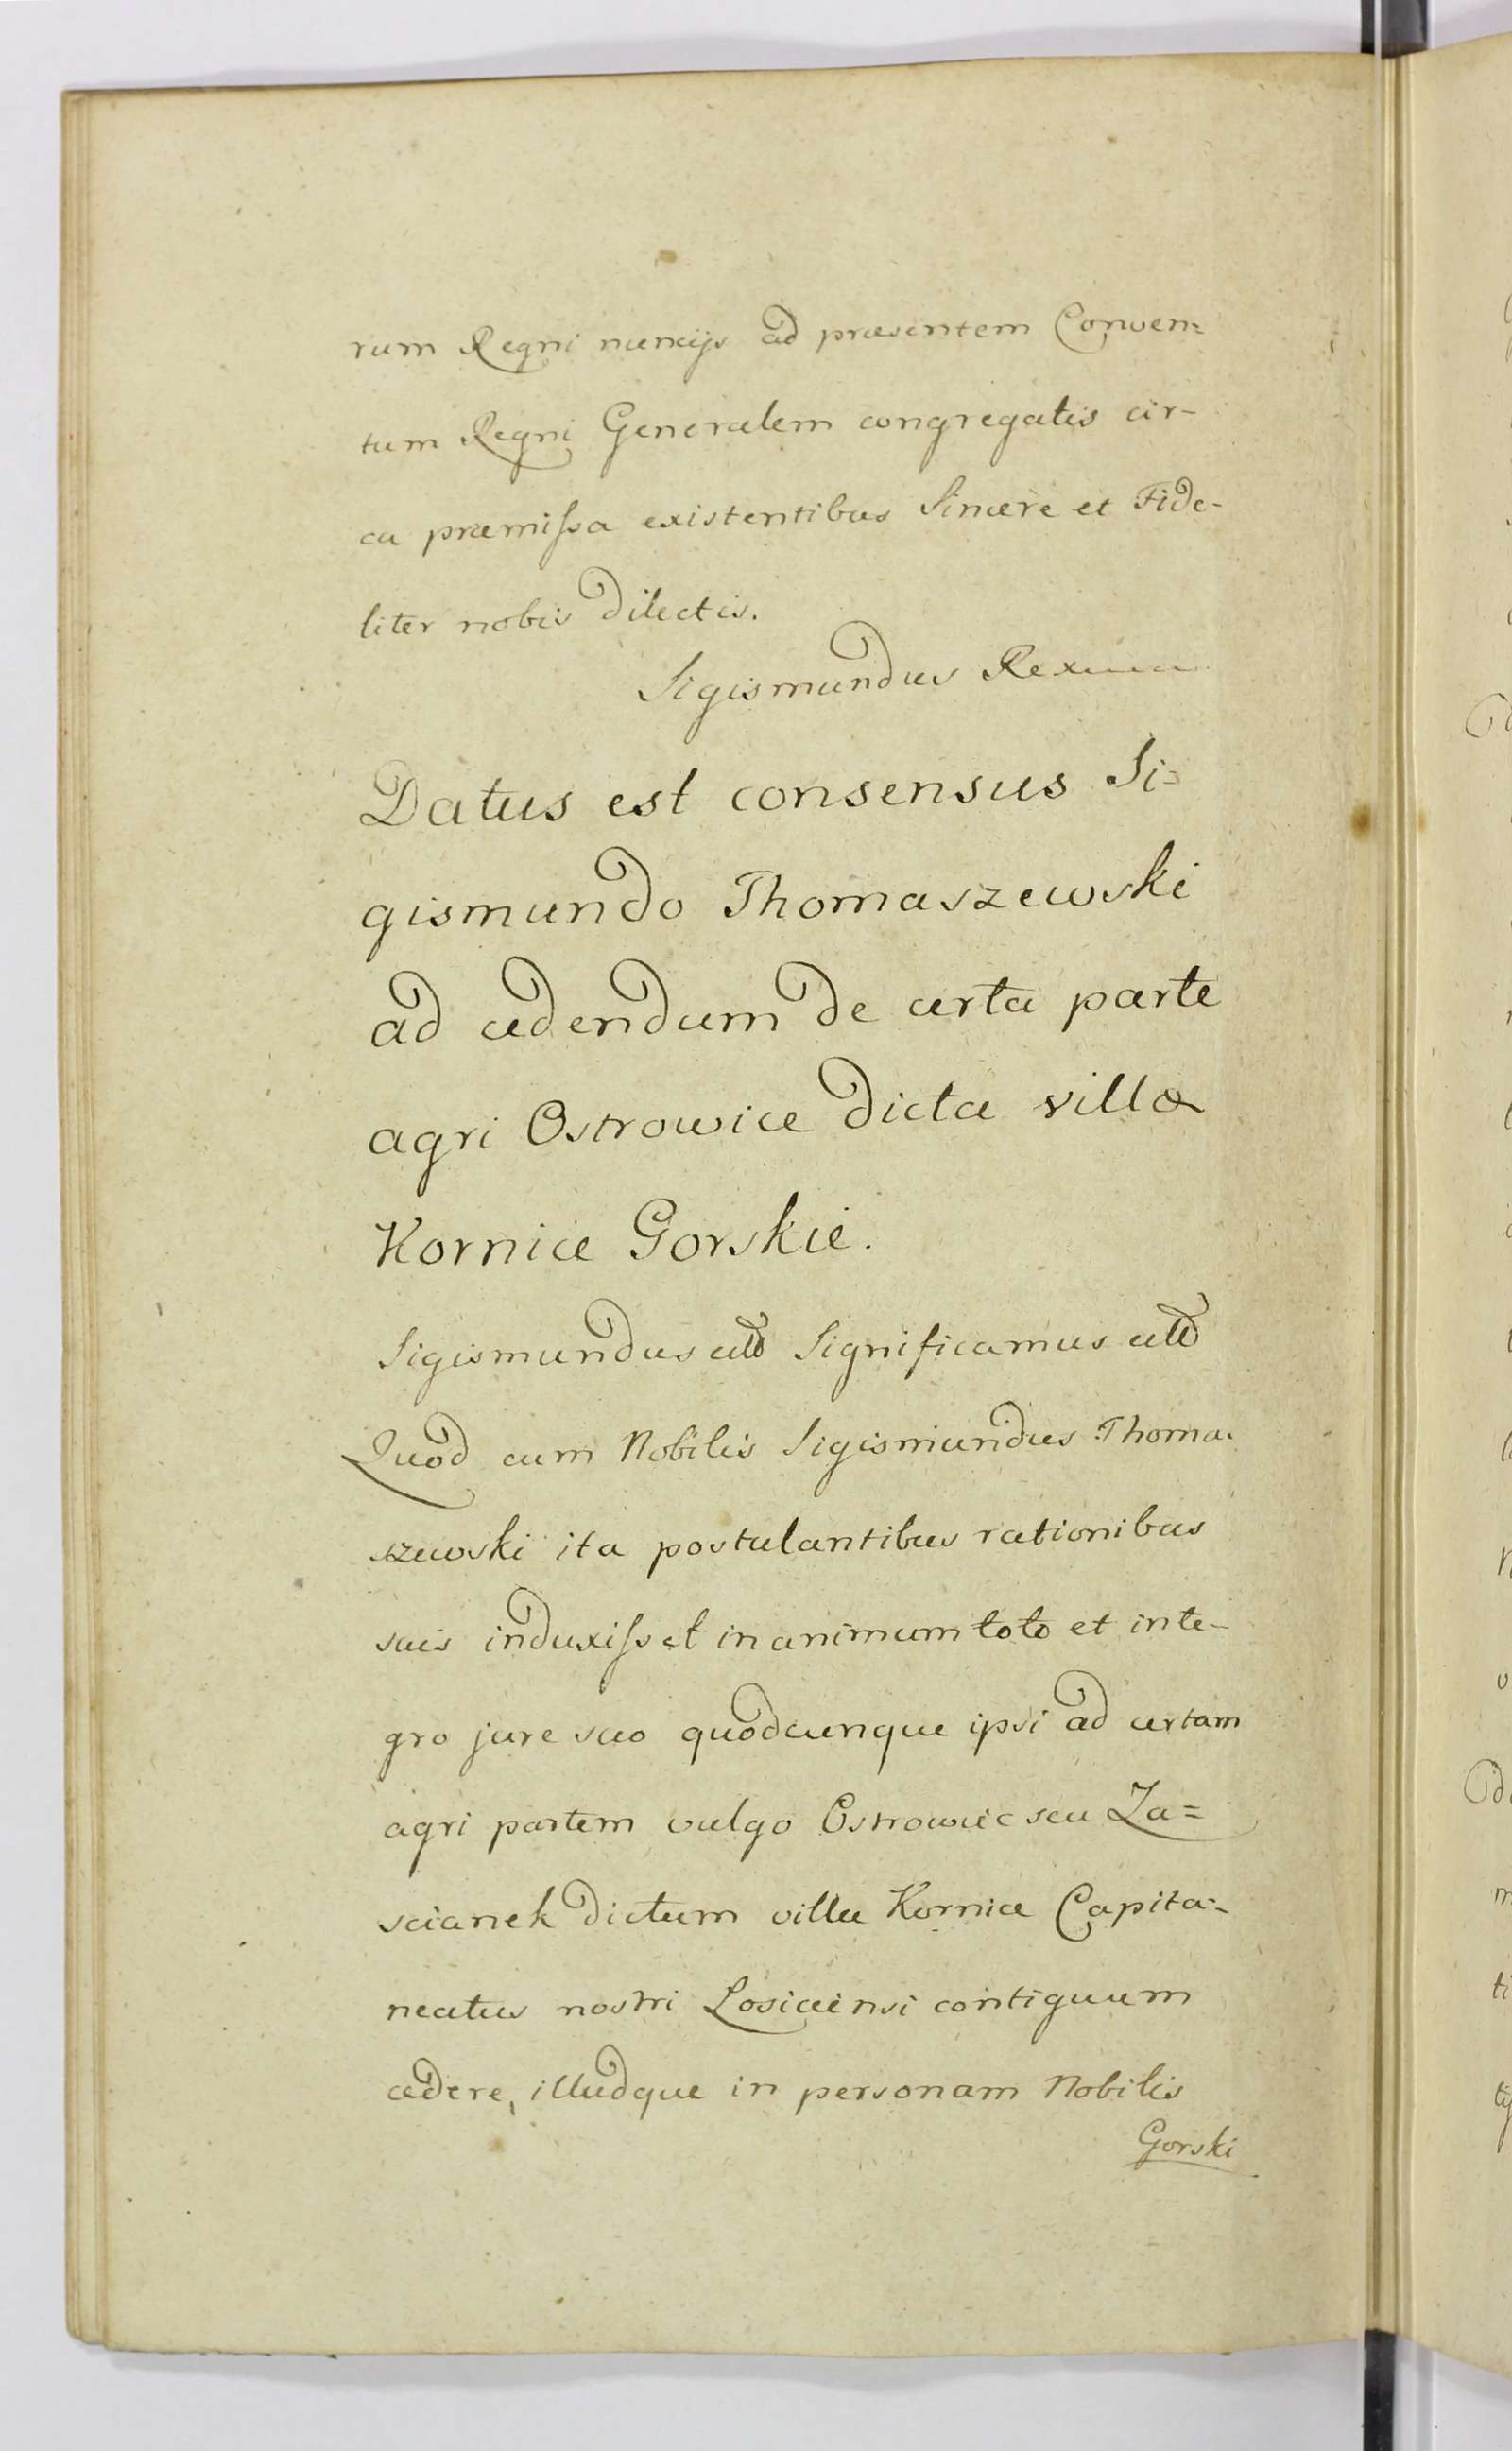 rum Regni nuncijs ad præsentem Conven=
tum Regni Generalem congregatis cir-
ca præmissa existentibus Sincere et Fide-
liter nobis dilectis.
Sigismundus Rex
Datus est consensus Si=
gismundo Thomaszewski
ad cedendum de certa parte
agri Ostrowice dicta villæ
Kornice Gorskie.
Sigismundus Significamus
Quod cum Nobilis Sigismundus Thoma-
szewski ita postulantibus rationibus
suis induxisset in animum toto et inte-
gro jure suo quodcunque ipsi ad certam
agri partem vulgo Ostrowiec seu Za=
scianek dictum villæ Kornice Capita=
neatus nostri Losicensi contiguum
cedere, illudque in personam Nobilis
Gorski